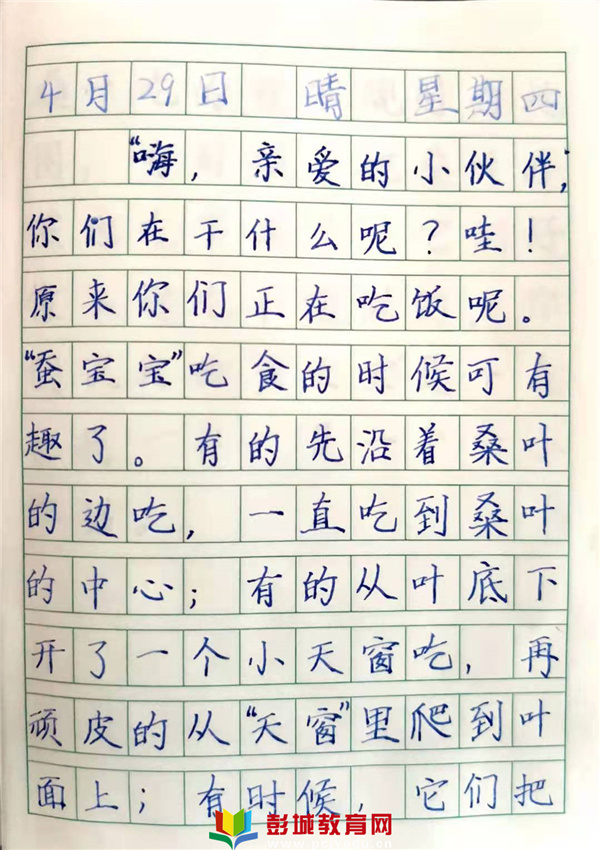 4月29日 晴 星期四
“嗨，亲爱的小伙伴，
你们在干什么呢？哇！
原来你们正在吃饭呢。
“蚕宝宝”吃食的时候可有
趣了。有的先沿着桑叶
的边吃，一直吃到桑叶
的中心；有的从叶底下
开了一个小天窗吃，再
顽皮的从“天窗”里爬到叶
面上；有时候，它们把
彭城教育网